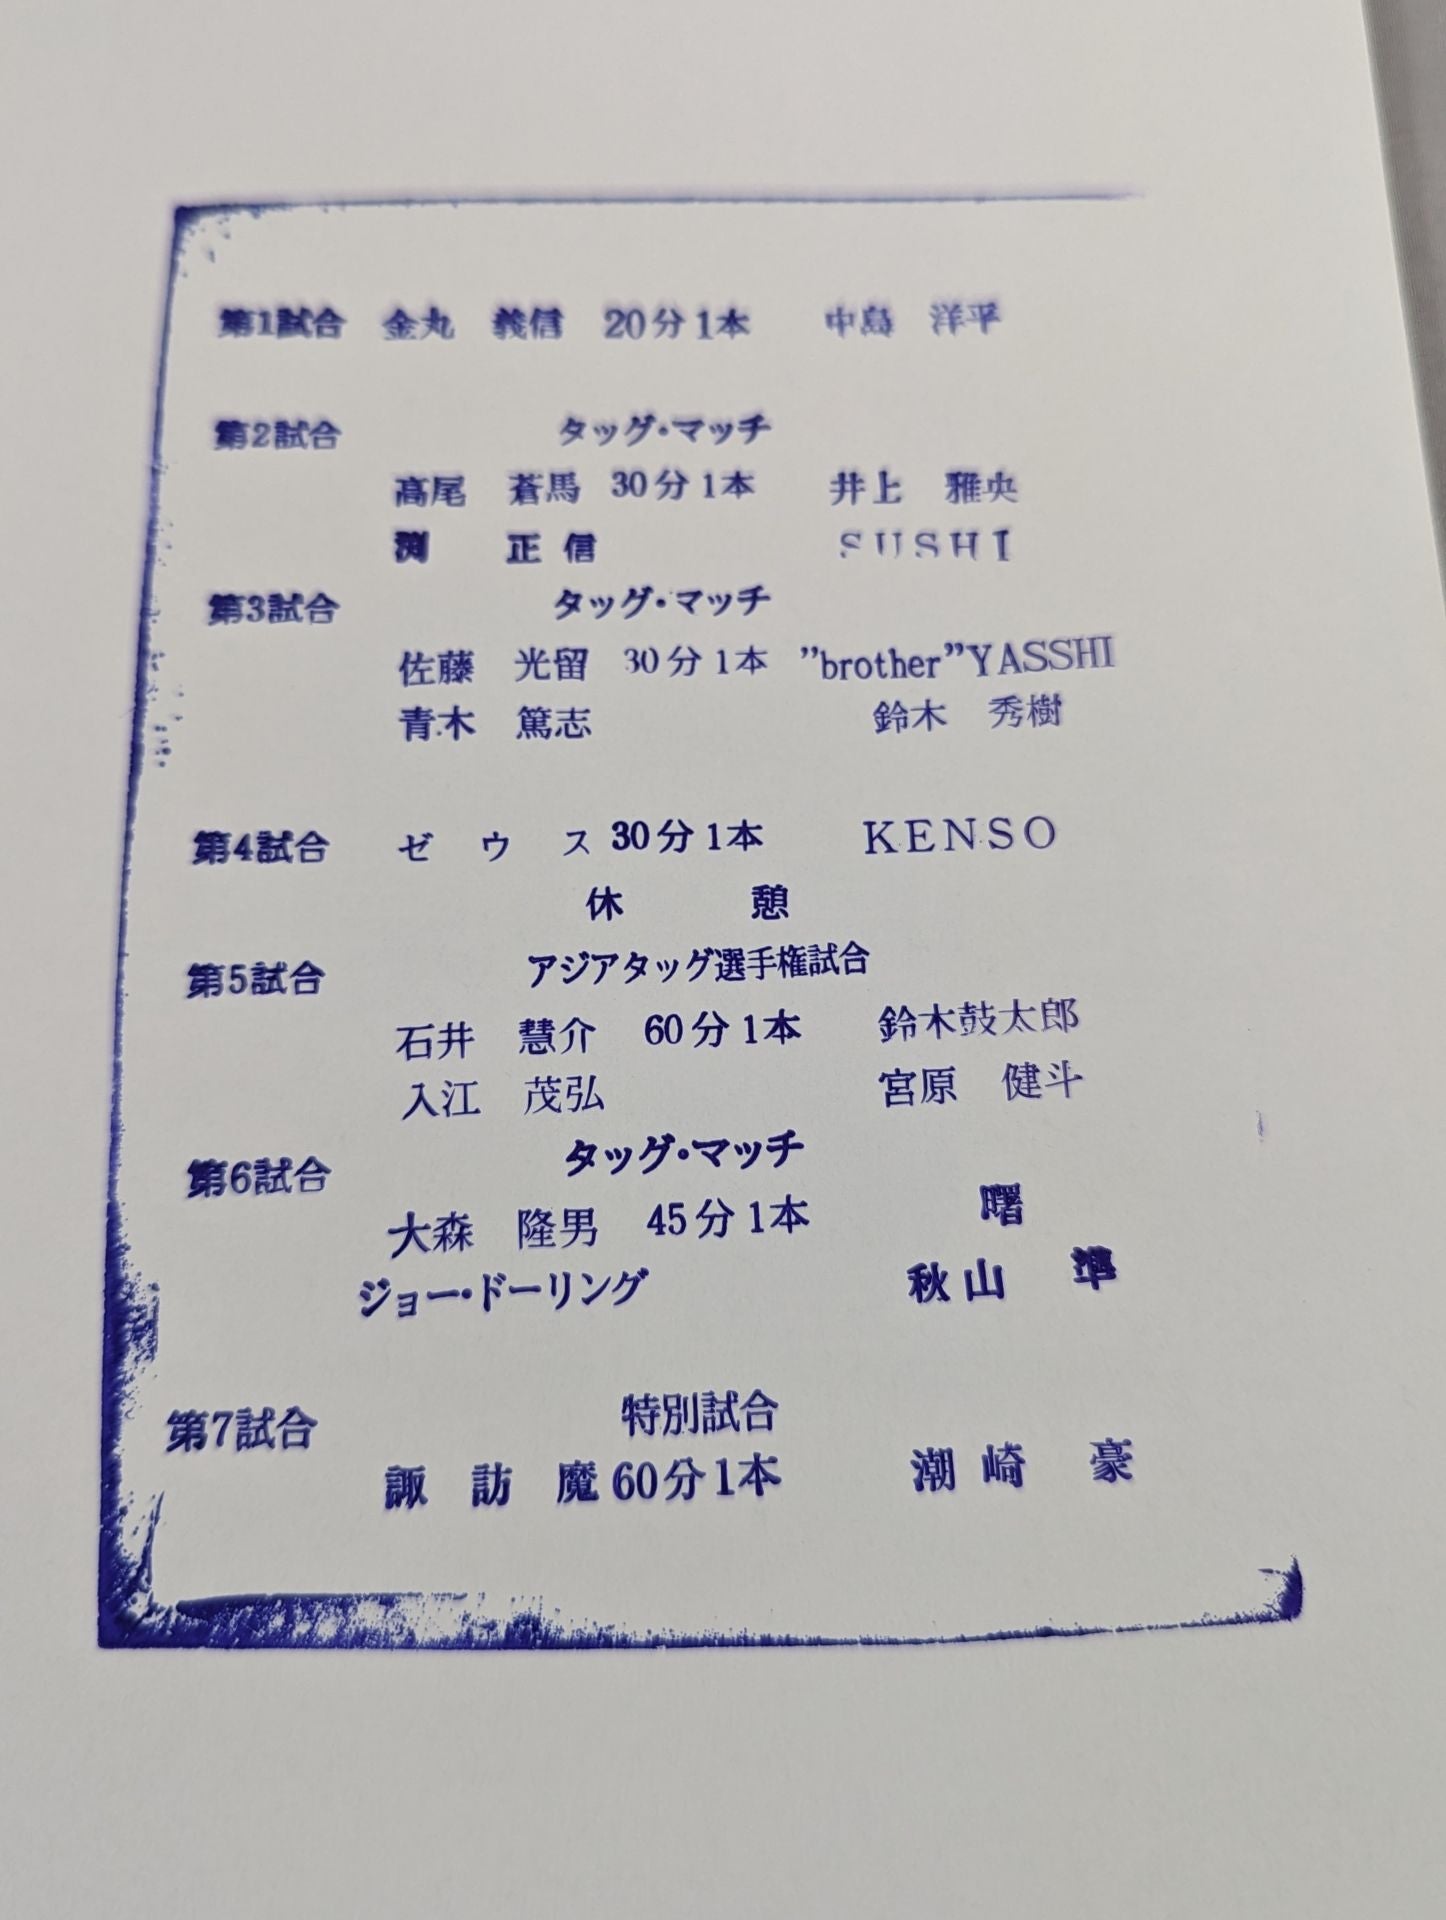 第1試合 金丸 義信 20分1本 中島 洋平
第2試合 タッグ・マッチ
高尾 蒼馬 30分1本 井上 雅央
渕 正信 SUSHI
第3試合 タッグ・マッチ
佐藤 光留 30分1本 ”brother”YASSHI
青木 篤志 鈴木 秀樹
第4試合 ゼウス 30分1本 KENSO
休憩
第5試合 アジアタッグ選手権試合
石井 慧介 60分1本 鈴木鼓太郎
入江 茂弘 宮原 健斗
第6試合 タッグ・マッチ
大森 隆男 45分1本 曙
ジョー・ドーリング 秋山 準
第7試合 特別試合
諏訪魔 60分1本 潮崎 豪